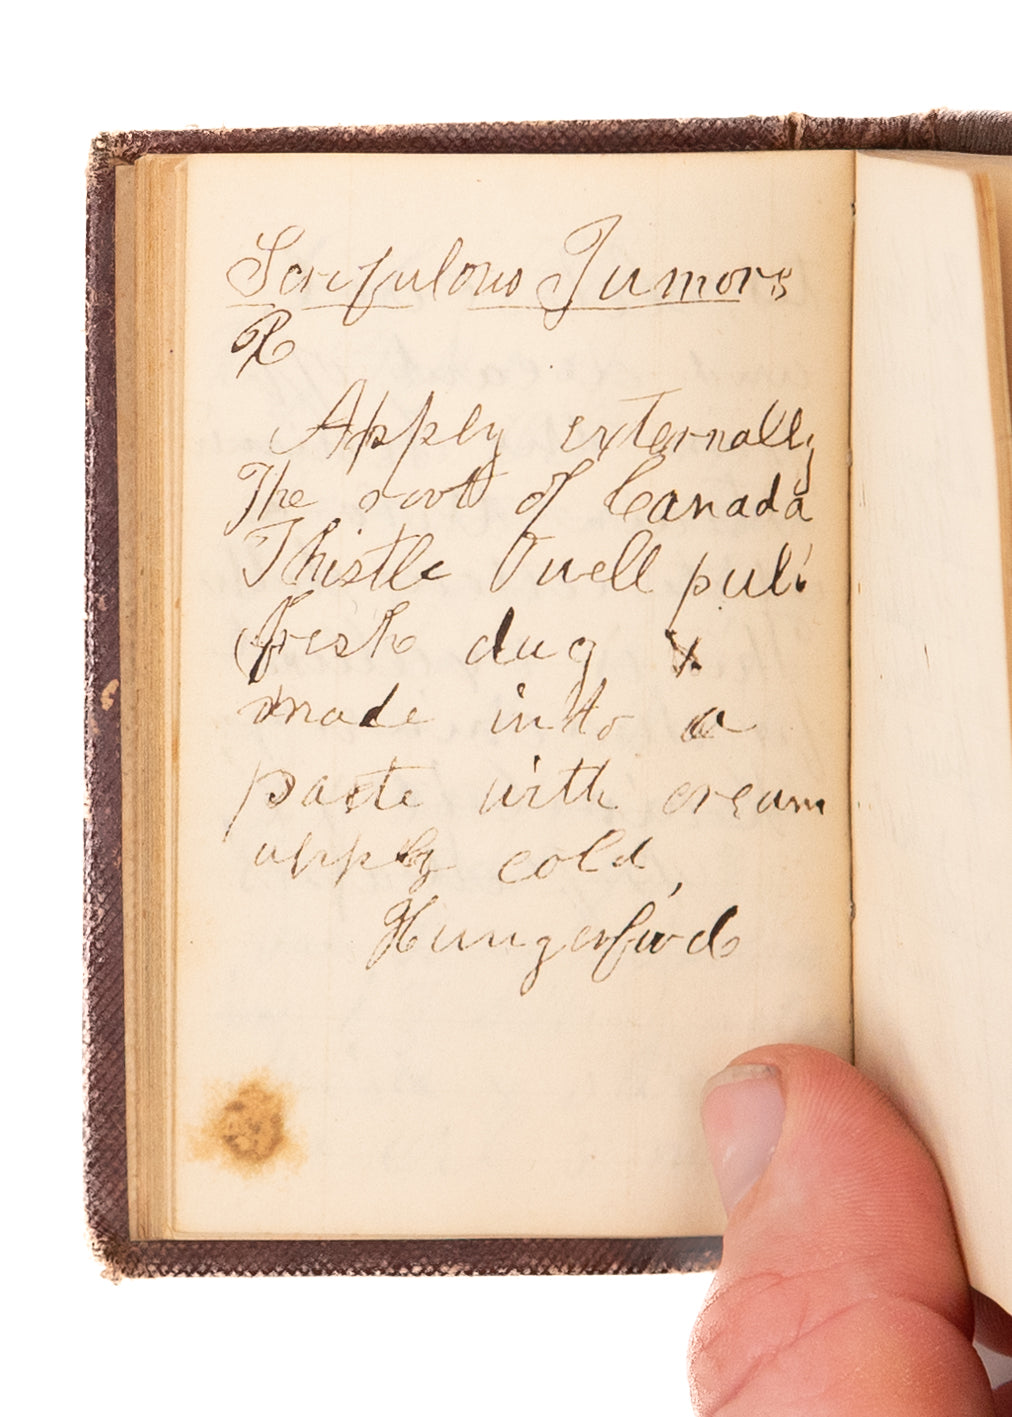 Scrifulous Tumors
℞
Apply externally
The root of Canada
Thistle well pul.
fresh dug &
made into a
paste with cream
apply cold,
Hungerford